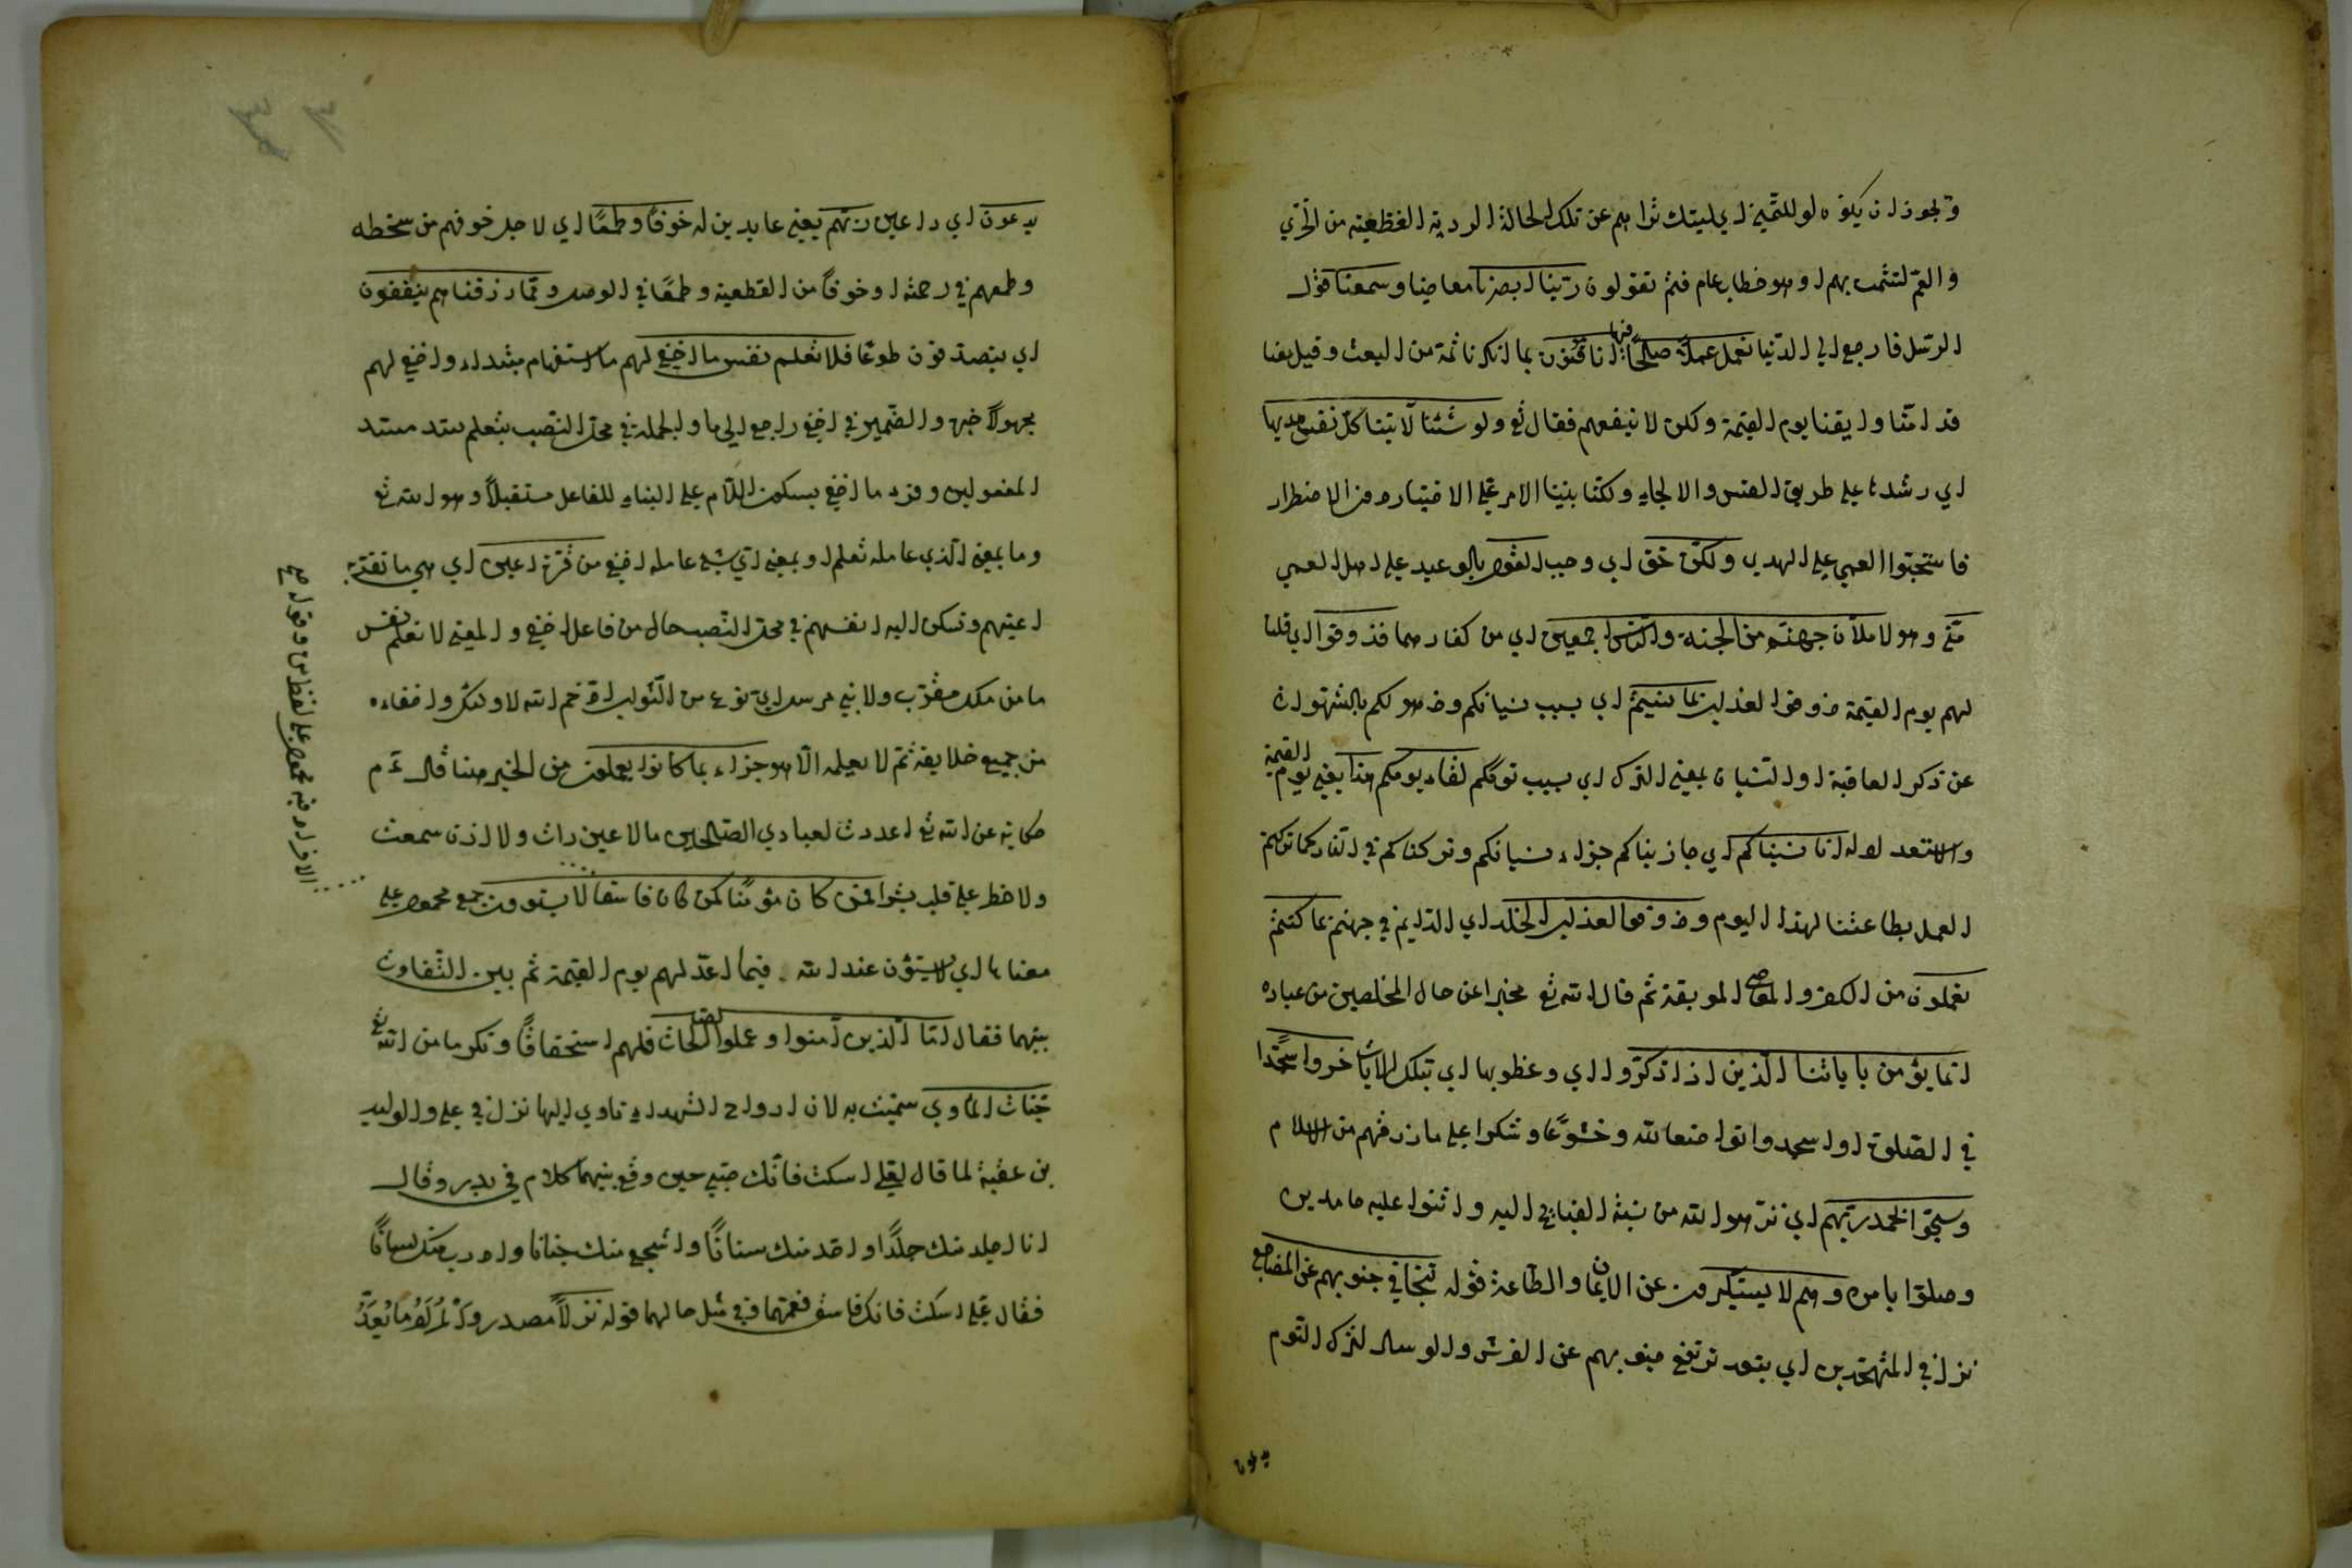 ويجوز ان يكون لو للتمني اي ليتك تراهم عن تلك الحالة الردية الفظيعة من الخزي
والغم لتشمت بهم او هو خطاب عام فثم تقولون ربنا ابصرنا معاصينا وسمعنا قول
الرسل فارجع الى الدنيا نعمل عملا صالحا فيها انا موقنون بما انكرنا ثمة من البعث وقيل يعنى
قد امنا وايقنا يوم القيمة ولكن لا ينفعهم فقال تع ولو شئنا لاتينا كل نفس هديها
اي رشدها على طريق القسر والالجاء ولكنا بنينا الامر على الاختيار دون الاضطرار
فاستحبوا العمى على الهدى ولكن حق اي وجب القول بالوعيد على اهل العمى
مني وهو لاملأن جهنم من الجنة والناس اجمعين اي من كفارهما فذوقوا اي قلنا
لهم يوم القيمة ذوقوا العذاب بما نسيتم اي بسبب نسيانكم وذهولكم بالشهوات
عن ذكر العاقبة او النسيان بمعنى الترك اي بسبب ترككم لقاء يومكم هذا يعنى يوم القيمة
والاستعداد له انا نسيناكم اي جازيناكم جزاء نسيانكم وتركناكم في النار كما تركتم
العمل بطاعتنا لهذا اليوم وذوقوا عذاب الخلد اي الدايم في جهنم بما كنتم
تعملون من الكفر والمعاصي الموبقة ثم قال الله تع مخبرا عن حال المخلصين من عباده
انما يؤمن باياتنا الذين اذا ذكروا اي وعظوا بها اي بتلك الايات خروا سجدا
في الصلوة او سجدوا تواضعا لله وخشوعا وشكرا على ما رزقهم من الاسلام
وسبحوا بحمد ربهم اي نزهوا الله من نسبة القبايح اليه واثنوا عليه حامدين
وصلوا بامره وهم لا يستكبرون عن الايمان والطاعة قوله تتجافى جنوبهم عن المضاجع
نزل في المتهجدين اي يتعد ترتفع جنوبهم عن الفرش والوسائد لترك النوم
يدعون
يدعون اي داعين ربهم يعنى عابدين له خوفا وطمعا اي لاجل خوفهم من سخطه
وطمعهم في رحمته او خوفا من القطيعة وطمعا في الوصل ومما رزقناهم ينفقون
اي يتصدقون طوعا فلا تعلم نفس ما اخفي لهم ما استفهام مبتداء واخفي لهم
مجهولا خبره والضمير في اخفي راجع الى ما والجملة في محل النصب بتعلم سد مسد
المفعولين وقرء ما اخفي بسكون اللام على البناء للفاعل مستقبلا وهو الله تع
وما بمعنى الذي عامله تعلم او بمعنى اي شئ عامله اخفي من قرة اعين اي هي ما تقر به
اعينهم وتسكن اليه انفسهم في محل النصب حال من فاعل اخفي والمعنى لا تعلم نفس
ما من ملك مقرب ولا نبي مرسل اي نوع من الثواب ادخر الله لاولئك واخفاه
من جميع خلايقه ثم لا يعلمه الا هو جزاء بما كانوا يعملون من الخير هنا قال م
حكاية عن الله تع اعددت لعبادي الصالحين ما لا عين رات ولا اذن سمعت
ولا خطر على قلب بشر افمن كان مؤمنا كمن كان فاسقا لا يستوون جمع محمول على
معناها اي لا يستوون عند الله فيما اعد لهم يوم القيمة ثم بين التفاوت
بينهما فقال اما الذين امنوا وعملوا الصالحات فلهم استحقاقا وتكرما من الله تع
جنات الماوى سميت به لان ارواح الشهداء تاوي اليها نزل في علي والوليد
بن عقبة لما قال لعلي اسكت فانك صبي حين وقع بينهما كلام في بدر وقال
انا اجلد منك جلدا واحد منك سنانا واشجع منك جنانا واذرب منك لسانا
فقال علي اسكت فانك فاسق فعمتهما في مثل حالهما قوله نزلا مصدر وذكر ما يعد
الافراد فيه محمول على لفظ من وقوله